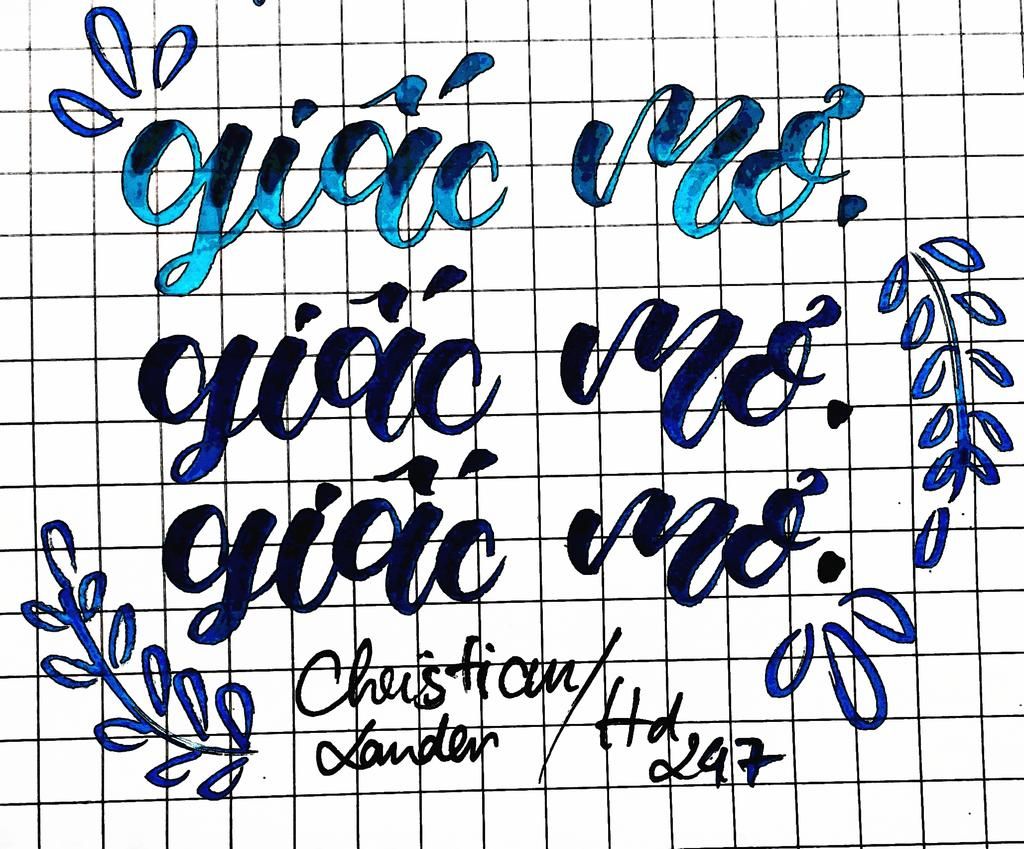 giấc mơ.
giấc mơ.
giấc mơ.
Christian/
Lander
Hd
297